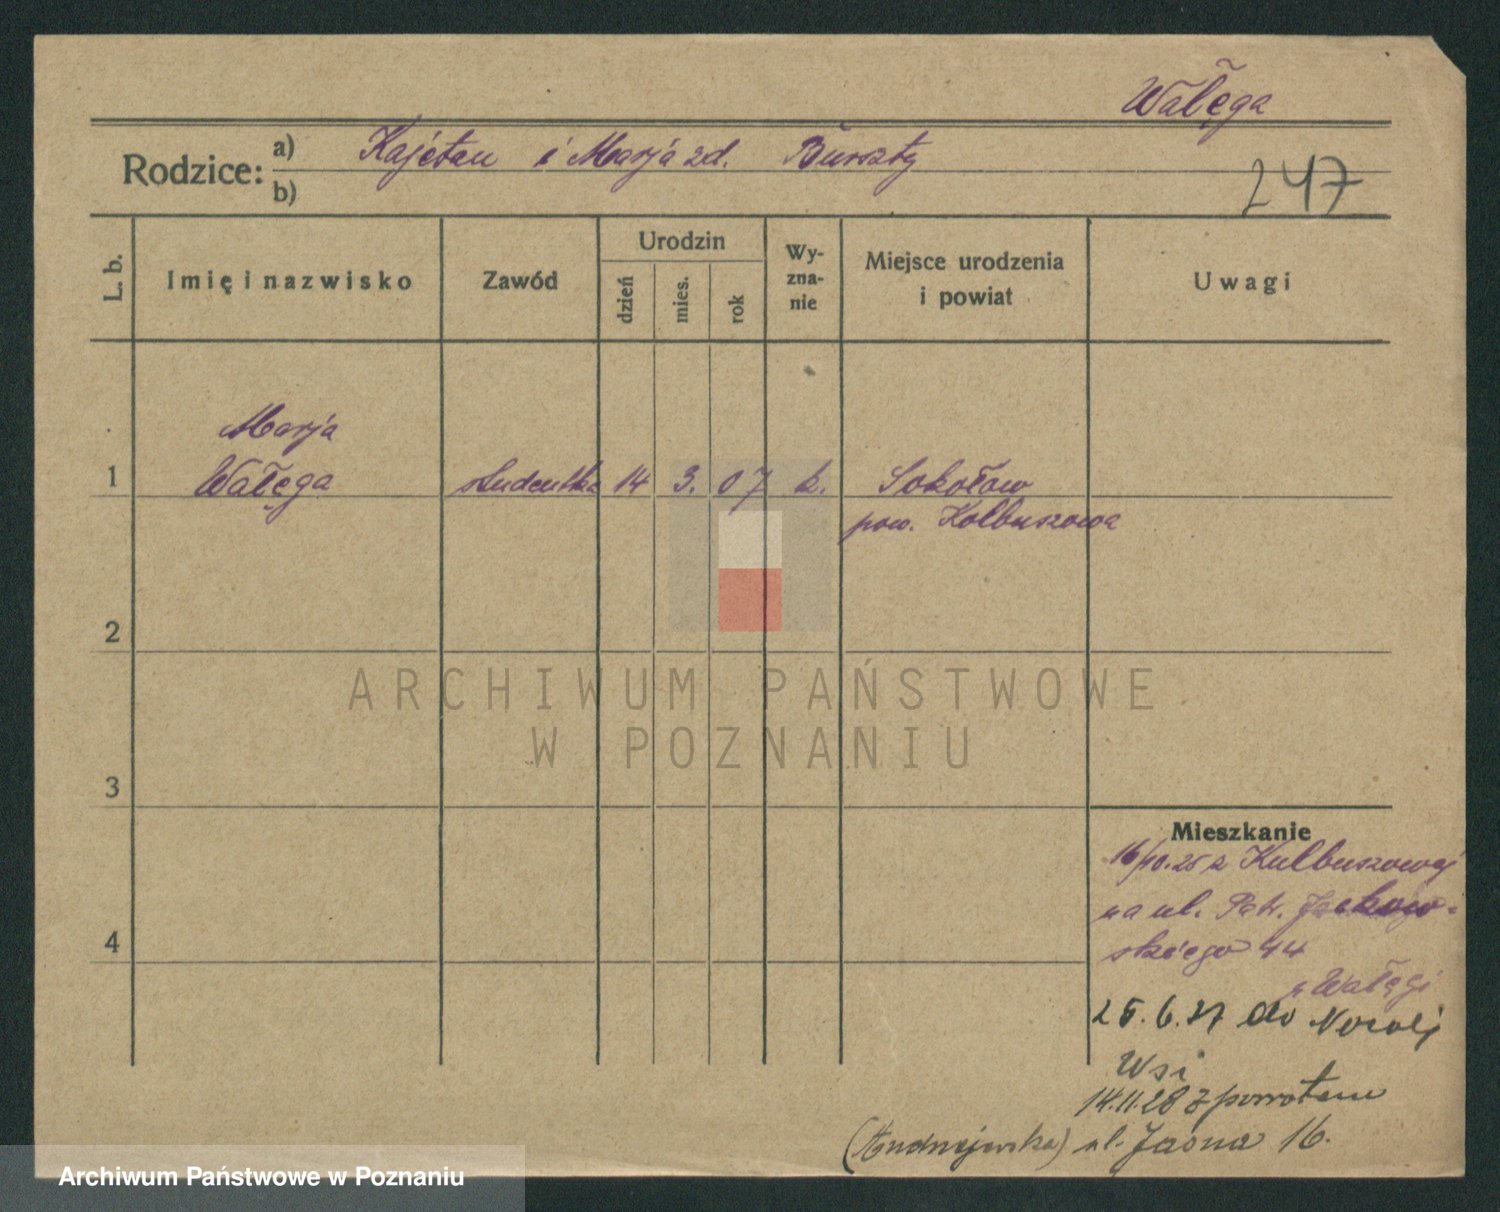 Wałęga
Rodzice: a) Kajetan i Marja zd. Burszty
b)
247
L. b.
Imię i nazwisko
Zawód
Urodzin
dzień
mies.
rok
Wy-
zna-
nie
Miejsce urodzenia
i powiat
Uwagi
Marja
1 Wałęga studentka 14 3. 07 k. Sokołow
pow. Kolbuszowa
2
3
4
Mieszkanie
16/10.25 z Kulbuszowej
na ul. Patr. Jackow-
skiego 44
u Wałęgi
25.6.27 do Nowej
Wsi
14.11.28 z powrotem
(Andrzejewska) ul. Jasna 16.
ARCHIWUM PAŃSTWOWE
W POZNANIU
Archiwum Państwowe w Poznaniu